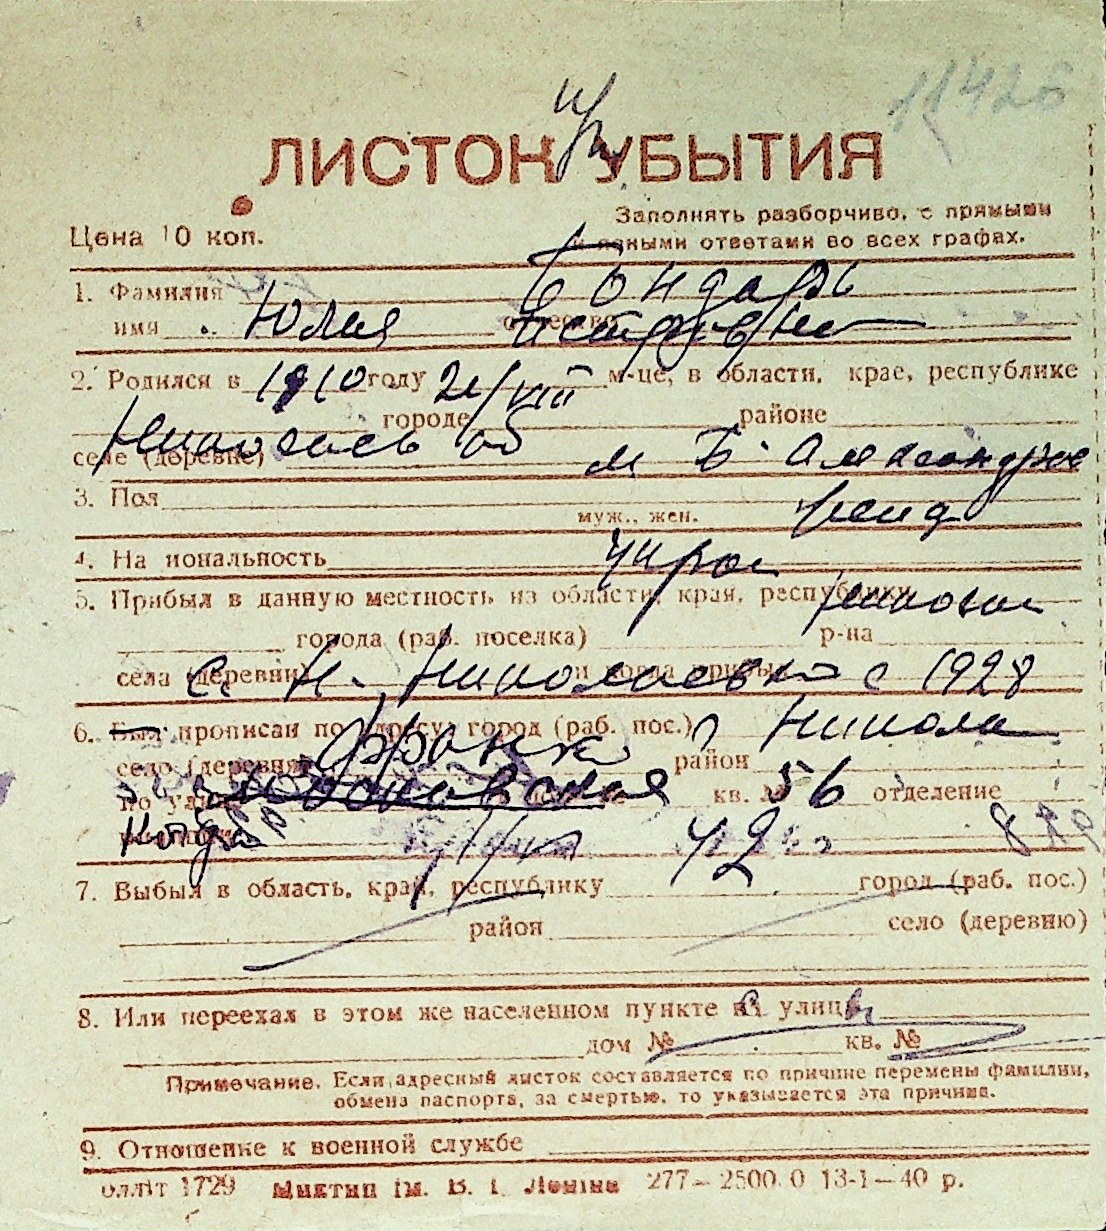 11426
ЛИСТОК УБЫТИЯ
Цена 10 коп.
Заполнять разборчиво, с прямыми
и ясными ответами во всех графах.
1. Фамилия Бондарь
имя Юлия отчество Петровна
2. Родился в 1910 году 21/VIII м-це, в области, крае, республике
городе районе
Николаевь об
селе (деревне) м Б. Александров
3. Пол
муж., жен. женд
4. На иональность Украи
5. Прибыл в данную местность из области, края, республики Николаев
города (раб. поселка) р-на
села (деревни) с. Н. Николаевка с 1928
6. Был прописан по адресу: город (раб. пос.) г Никола
село (деревня) Франка район
по улице кв. № 56 отделение
Когда 42
7. Выбыл в область, край, республику город (раб. пос.)
район село (деревню)
8. Или переехал в этом же населенном пункте на улицу
дом № кв. №
Примечание. Если адресный листок составляется по причине перемены фамилии,
обмена паспорта, за смертью, то указывается эта причина.
9. Отношение к военной службе
Обллит 1729 Миктип ім. В. І. Леніна 277—2500 0 13-1—40 р.